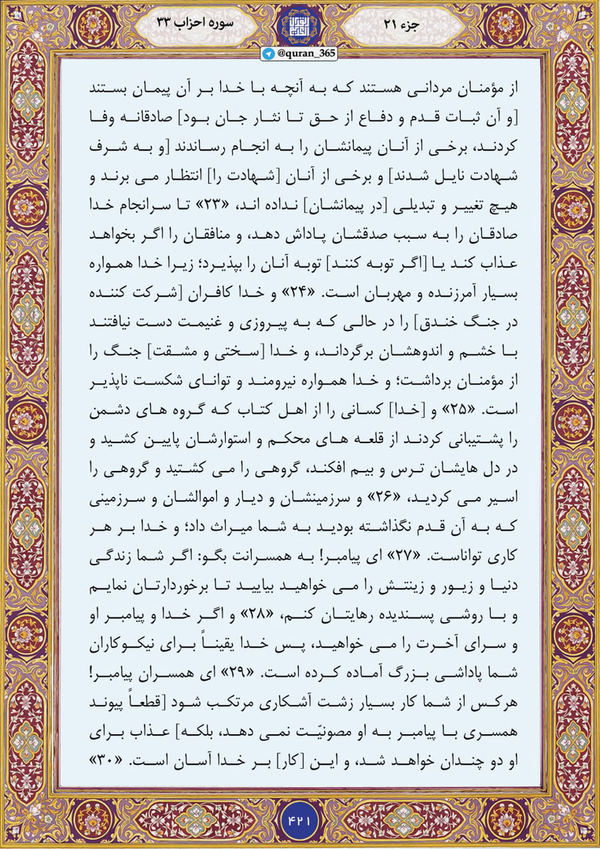 جزء ۲۱
سوره احزاب ۳۳
@quran_365
از مؤمنان مردانی هستند که به آنچه با خدا بر آن پیمان بستند
[و آن ثبات قدم و دفاع از حق تا نثار جان بود] صادقانه وفا
کردند، برخی از آنان پیمانشان را به انجام رساندند [و به شرف
شهادت نایل شدند] و برخی از آنان [شهادت را] انتظار می برند و
هیچ تغییر و تبدیلی [در پیمانشان] نداده اند، «۲۳» تا سرانجام خدا
صادقان را به سبب صدقشان پاداش دهد، و منافقان را اگر بخواهد
عذاب کند یا [اگر توبه کنند] توبه آنان را بپذیرد؛ زیرا خدا همواره
بسیار آمرزنده و مهربان است. «۲۴» و خدا کافران [شرکت کننده
در جنگ خندق] را در حالی که به پیروزی و غنیمت دست نیافتند
با خشم و اندوهشان برگرداند، و خدا [سختی و مشقت] جنگ را
از مؤمنان برداشت؛ و خدا همواره نیرومند و توانای شکست ناپذیر
است. «۲۵» و [خدا] کسانی را از اهل کتاب که گروه های دشمن
را پشتیبانی کردند از قلعه های محکم و استوارشان پایین کشید و
در دل هایشان ترس و بیم افکند، گروهی را می کشتید و گروهی را
اسیر می کردید، «۲۶» و سرزمینشان و دیار و اموالشان و سرزمینی
که به آن قدم نگذاشته بودید به شما میراث داد؛ و خدا بر هر
کاری تواناست. «۲۷» ای پیامبر! به همسرانت بگو: اگر شما زندگی
دنیا و زیور و زینتش را می خواهید بیایید تا برخوردارتان نمایم
و با روشی پسندیده رهایتان کنم، «۲۸» و اگر خدا و پیامبر او
و سرای آخرت را می خواهید، پس خدا یقیناً برای نیکوکاران
شما پاداشی بزرگ آماده کرده است. «۲۹» ای همسران پیامبر!
هرکس از شما کار بسیار زشت آشکاری مرتکب شود [قطعاً پیوند
همسری با پیامبر به او مصونیّت نمی دهد، بلکه] عذاب برای
او دو چندان خواهد شد، و این [کار] بر خدا آسان است. «۳۰»
۴۲۱